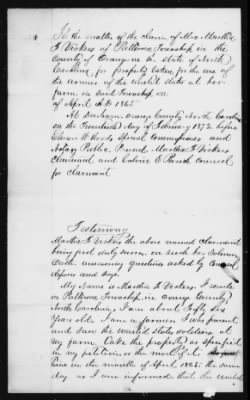 In the matter of the claim of Mrs. Martha
F Vickers of Patterson Township in the
County of Orange in the state of North
Carolina, for property taken for the use of the
armies of the united states at her
farm in said Township in
of April A.D 1865
At Durham, Orange County North Carolina
on the Twentieth day of February 1872 before
Special Commissioner and
Notary Public, Present Martha F Vickers
Claimant and Calvin E Parish Counsel
for claimant
Testimony
Martha F Vickers the above named claimant
being first duly sworn, on such her voluntary
Oath, answering questions asked by Counsel
deposes and says.
My Name is Martha F Vickers. I reside
in Patterson Township, in Orange County
North Carolina, I am about Fifty five
Years old. I am a farmer. I was present
and saw the United States soldiers, at
my farm. Take the property as specified
in my petition in the month of
time in the month of April 1865. the same
day as I am informed that the